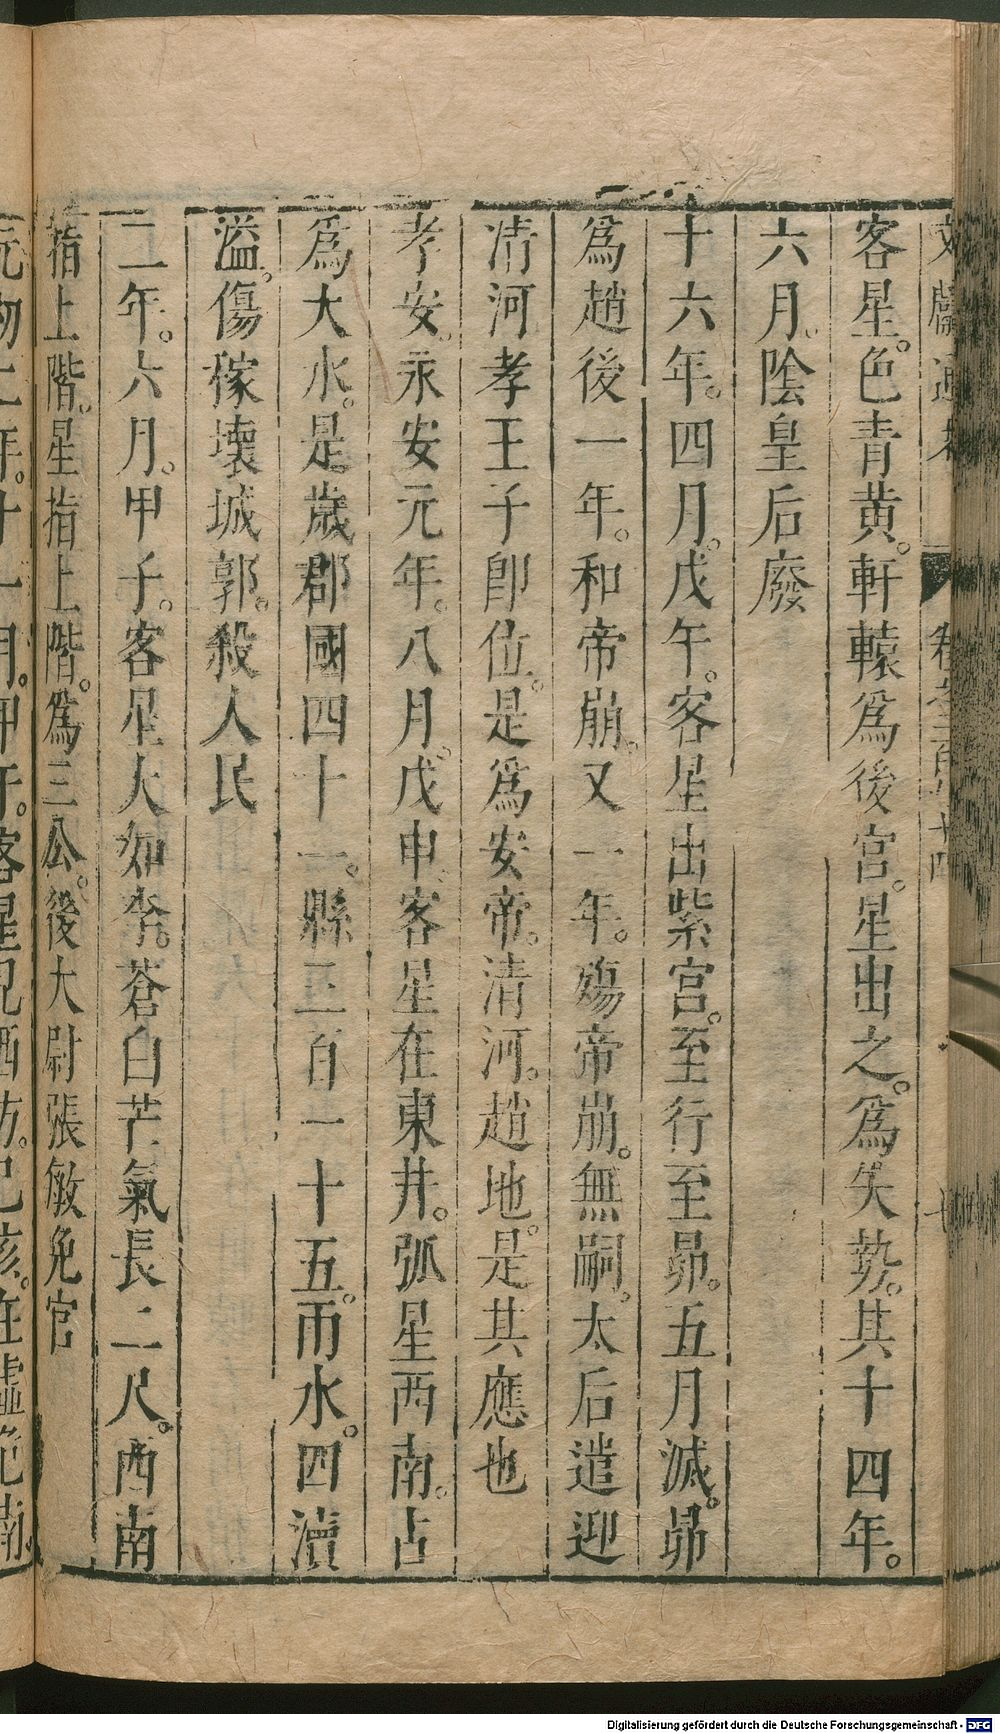 客星。色青黄。軒轅爲後宮。星出之。爲失勢。其十四年。
六月。陰皇后廢
十六年。四月。戊午。客星出紫宮。至行至昴。五月滅。昴
爲趙後一年。和帝崩。又一年。殤帝崩。無嗣。太后遣迎
清河孝王子卽位。是爲安帝。清河。趙地。是其應也
孝安。永安元年。八月。戊申。客星在東井。弧星西南。占
爲大水。是歲郡國四十一。縣三百一十五。雨水。四瀆
溢。傷稼壞城郭。殺人民
二年。六月。甲子。客星大如李。蒼白芒氣長二尺。西南
指上階。星指上階。爲三公。後大尉張敏免官
元初二年。十一月。甲午。客星見西方。己亥。在虛危南。
Digitalisierung gefördert durch die Deutsche Forschungsgemeinschaft - DFG